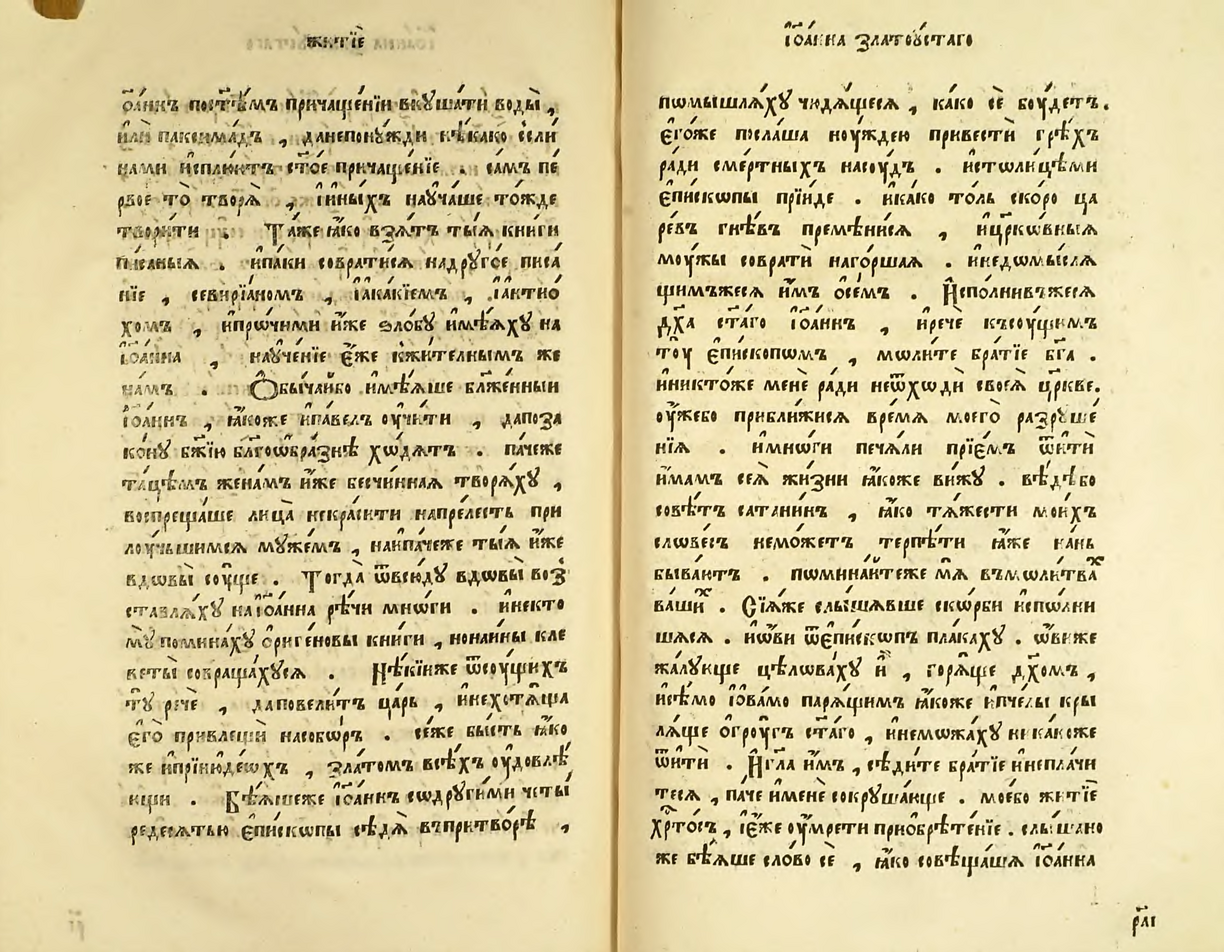 житїѐ
ѻ҆а́ннъ посте́мъ причаще́нїи вкꙋша́ти воды̀ ,
и҆лѝ паксима́дъ , данепонꙋ́жди нѣ́како если́
нами и҆сплю́ютъ ст҃ое причаще́нїе . са́мъ пе́
рвое то̀ творѧ̀ , ї҆и҆ны́хъ наꙋча́ше то́жде
твори́ти . Та́же ꙗ҆́ко взѧ́тъ тыѧ̀ книги
пи́саныѧ . и҆па́ки собрати́сѧ надрꙋго́е писа́
нїе , севирїа́номъ , ї҆ака́кїемъ , ї҆антїо́
хомъ , и҆прѡ́чими и҆̀же ѕло́бꙋ и҆мѣ́ѧхꙋ на
ї҆ѡ҃а́нна , наꙋче́нїе є҆́же кжи́телнымъ же
на́мъ . Ѻ҆бы́чайбо и҆мѣ́ѧше бл҃же́нныи
ї҆ѡ҃а́ннъ , ꙗ҆́коже и҆па́велъ оу҆чи́ти , дапоза
ко́нꙋ бж҃їю бл҃гоѡ҆бра́знѣ хѡ́дѧтъ . па́чеже
та́цѣмъ жена́мъ и҆́же бесчи́ннаѧ творѧ́хꙋ ,
воспреща́ше лица̀ некра́сити напре́лесть при
лоу́чьшимсѧ мꙋже́мъ , наипа́чеже тыѧ̀ и҆́же
вдѡвы̀ сꙋ́ще . Тогда̀ ѿвсю́дꙋ вдѡвы̀ воз
ставлѧ́хꙋ наї҆ѡ҃а́нна рѣ́чи мнѡ́ги . и҆не́кто
мꙋ̀ помина́хꙋ ѻ҆риге́новы кни́ги , нонаи́ны кле
веты̀ собраща́хꙋсѧ . Нѣ́кїиже ѿсоу́щихъ
тꙋ̀ речѐ , даповели́тъ ца́рь , и҆нехотѧ́ща
є҆го̀ привлещѝ насобѡ́ръ . се́же бы́сть ꙗ҆́ко
же и҆прїи҆юде́ѡхъ , зла́томъ всѣ́хъ оу҆довлѣ́
ищи . Бѣ́ѧшеже ї҆ѡ҃а́ннъ сѡдрꙋги́ми четы́
редесѧтью є҆пи́скѡпы сѣдѧ̀ въпритво́рѣ ,
ї҆ѡ҃а́нна златоꙋ́стаго
пѡмышлѧ́хꙋ чюдѧ́щесѧ , ка́ко сѐ боу́детъ .
є҆го́же посла́ша ноу́ждею привестѝ грѣ́хъ
ради сме́ртныхъ насоу́дъ . и҆стѡли́цѣми
є҆пи́скѡпы прїи́де . и҆ка́ко то́ль ско́ро ца
ре́въ гнѣ́въ премѣни́сѧ , и҆цр҃кѡ́вныѧ
моу́жы собратѝ наго́ршаѧ . и҆недѡмы́слѧ
щимъжесѧ и҆̀мъ ѻ҆се́мъ . И҆спо́лнивъжесѧ
дх҃а ст҃а́го ї҆ѡ҃а́ннъ , и҆речѐ късоу́щимъ
тоу̀ є҆пи́скопѡмъ , мѡли́те бра́тїе бг҃а .
и҆никто́же менѐ ра́ди неѿхѡдѝ своеѧ̀ цр҃кве .
оу҆́жебо прибли́жисѧ вре́мѧ моего̀ разрꙋше́
нїѧ . и҆мнѡ́ги печа́ли прїе́мъ ѿи́ти
и҆́мамъ сеѧ̀ жи́зни ꙗ҆́коже ви́жꙋ . вѣ́дѣбо
совѣ́тъ сатани́нъ , ꙗ҆́ко тѧ́жести мои́хъ
слѡве́съ немо́жетъ терпѣ́ти ꙗ҆́же ка́нь
быва́ютъ . пѡмина́йтеже мѧ̀ въмѡли́твах
ва́ших . Сїѧ́же слы́шавше ско́рби и҆спѡ́лни
шасѧ . и҆ѡ́ви ѿє҆пи́скѡпъ пла́кахꙋ . ѡ҆́виже
жа́лꙋюще цѣлѡва́хꙋ и҆̀ , горѧ́ще дх҃омъ ,
и҆сѣ́мо ї҆ова́мо парѧ́щимъ ꙗ҆́коже и҆пче́лы кры
лѧ́ще ѻ҆гроу́гъ ст҃а́го , и҆немѡжа́хꙋ ника́коже
ѿитѝ . И҆гл҃а и҆̀мъ , сѣди́те бра́тїе и҆непла́чи
тесѧ , па́че и҆менѐ сокрꙋша́юще . мое́бо житїѐ
хр҃то́съ , ї҆є҆́же оу҆мре́ти приѡбрѣте́нїе . слы́шано
же бѣ́ѧше сло́во сѐ , ꙗ҆́ко совѣща́шѧ ї҆ѡ҃а́нна
рл҃і